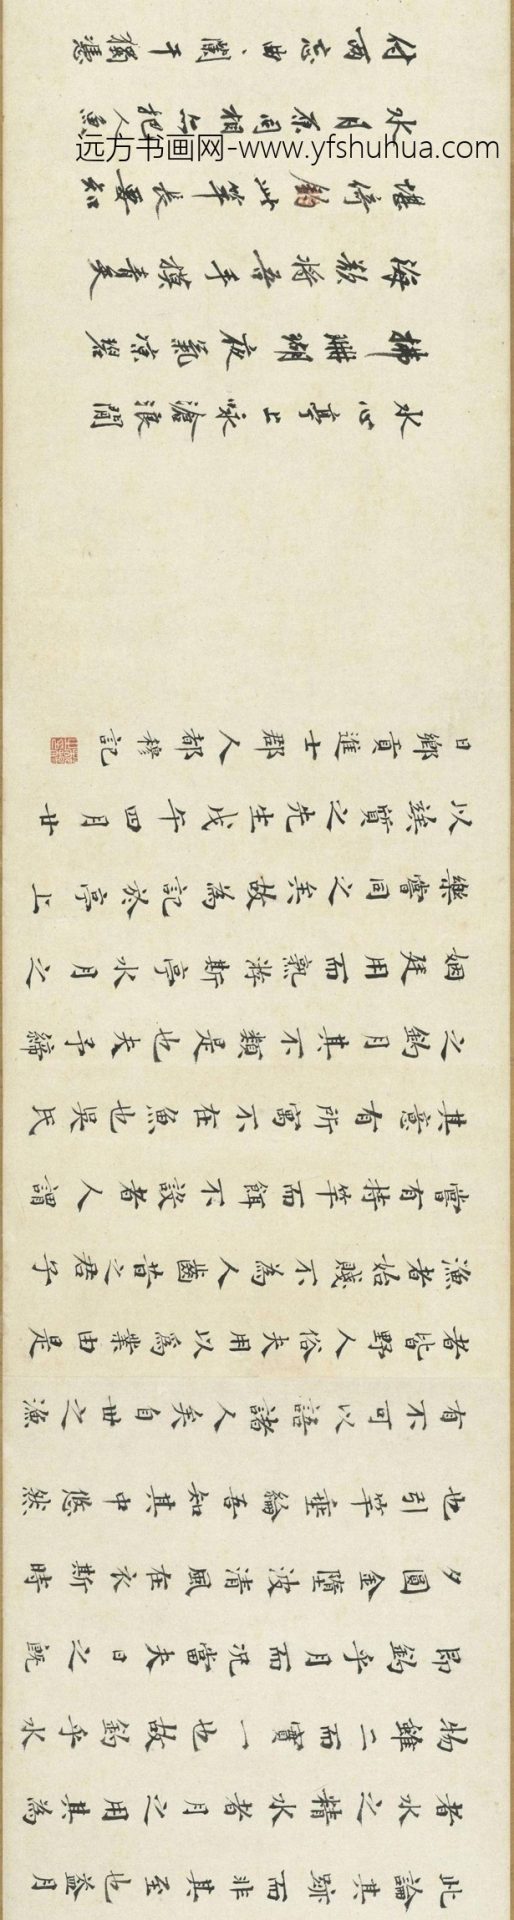 此論其跡而非其至也蓋月
者水之精水者月之用其為
物雖二而實一也故釣乎水
即釣乎月而況當夫日之既
夕圓金墮波清風在衣斯時
也引竿垂綸吾知其中悠然
有不可以語諸人矣自世之漁
者皆野人俗夫用以為業由是
漁者始賤不為人齒昔之君子
嘗有持竿而餌不設者人謂
其意有所寓不在魚也吳氏
之釣月其不類是也夫予締
姻廷用而熟游斯亭水月之
樂嘗同之矣故為記於亭上
以質之先生戊午四月廿
日鄉貢進士郡人都穆記
水心亭上咏滄浪閒
拂珊瑚夜氣凉碧
海欲將吾手摸青天
堪停釣此竿長要知
水月原同相把人魚
付兩忘曲闌干獨憑
远方书画网-www.yfshuhua.com